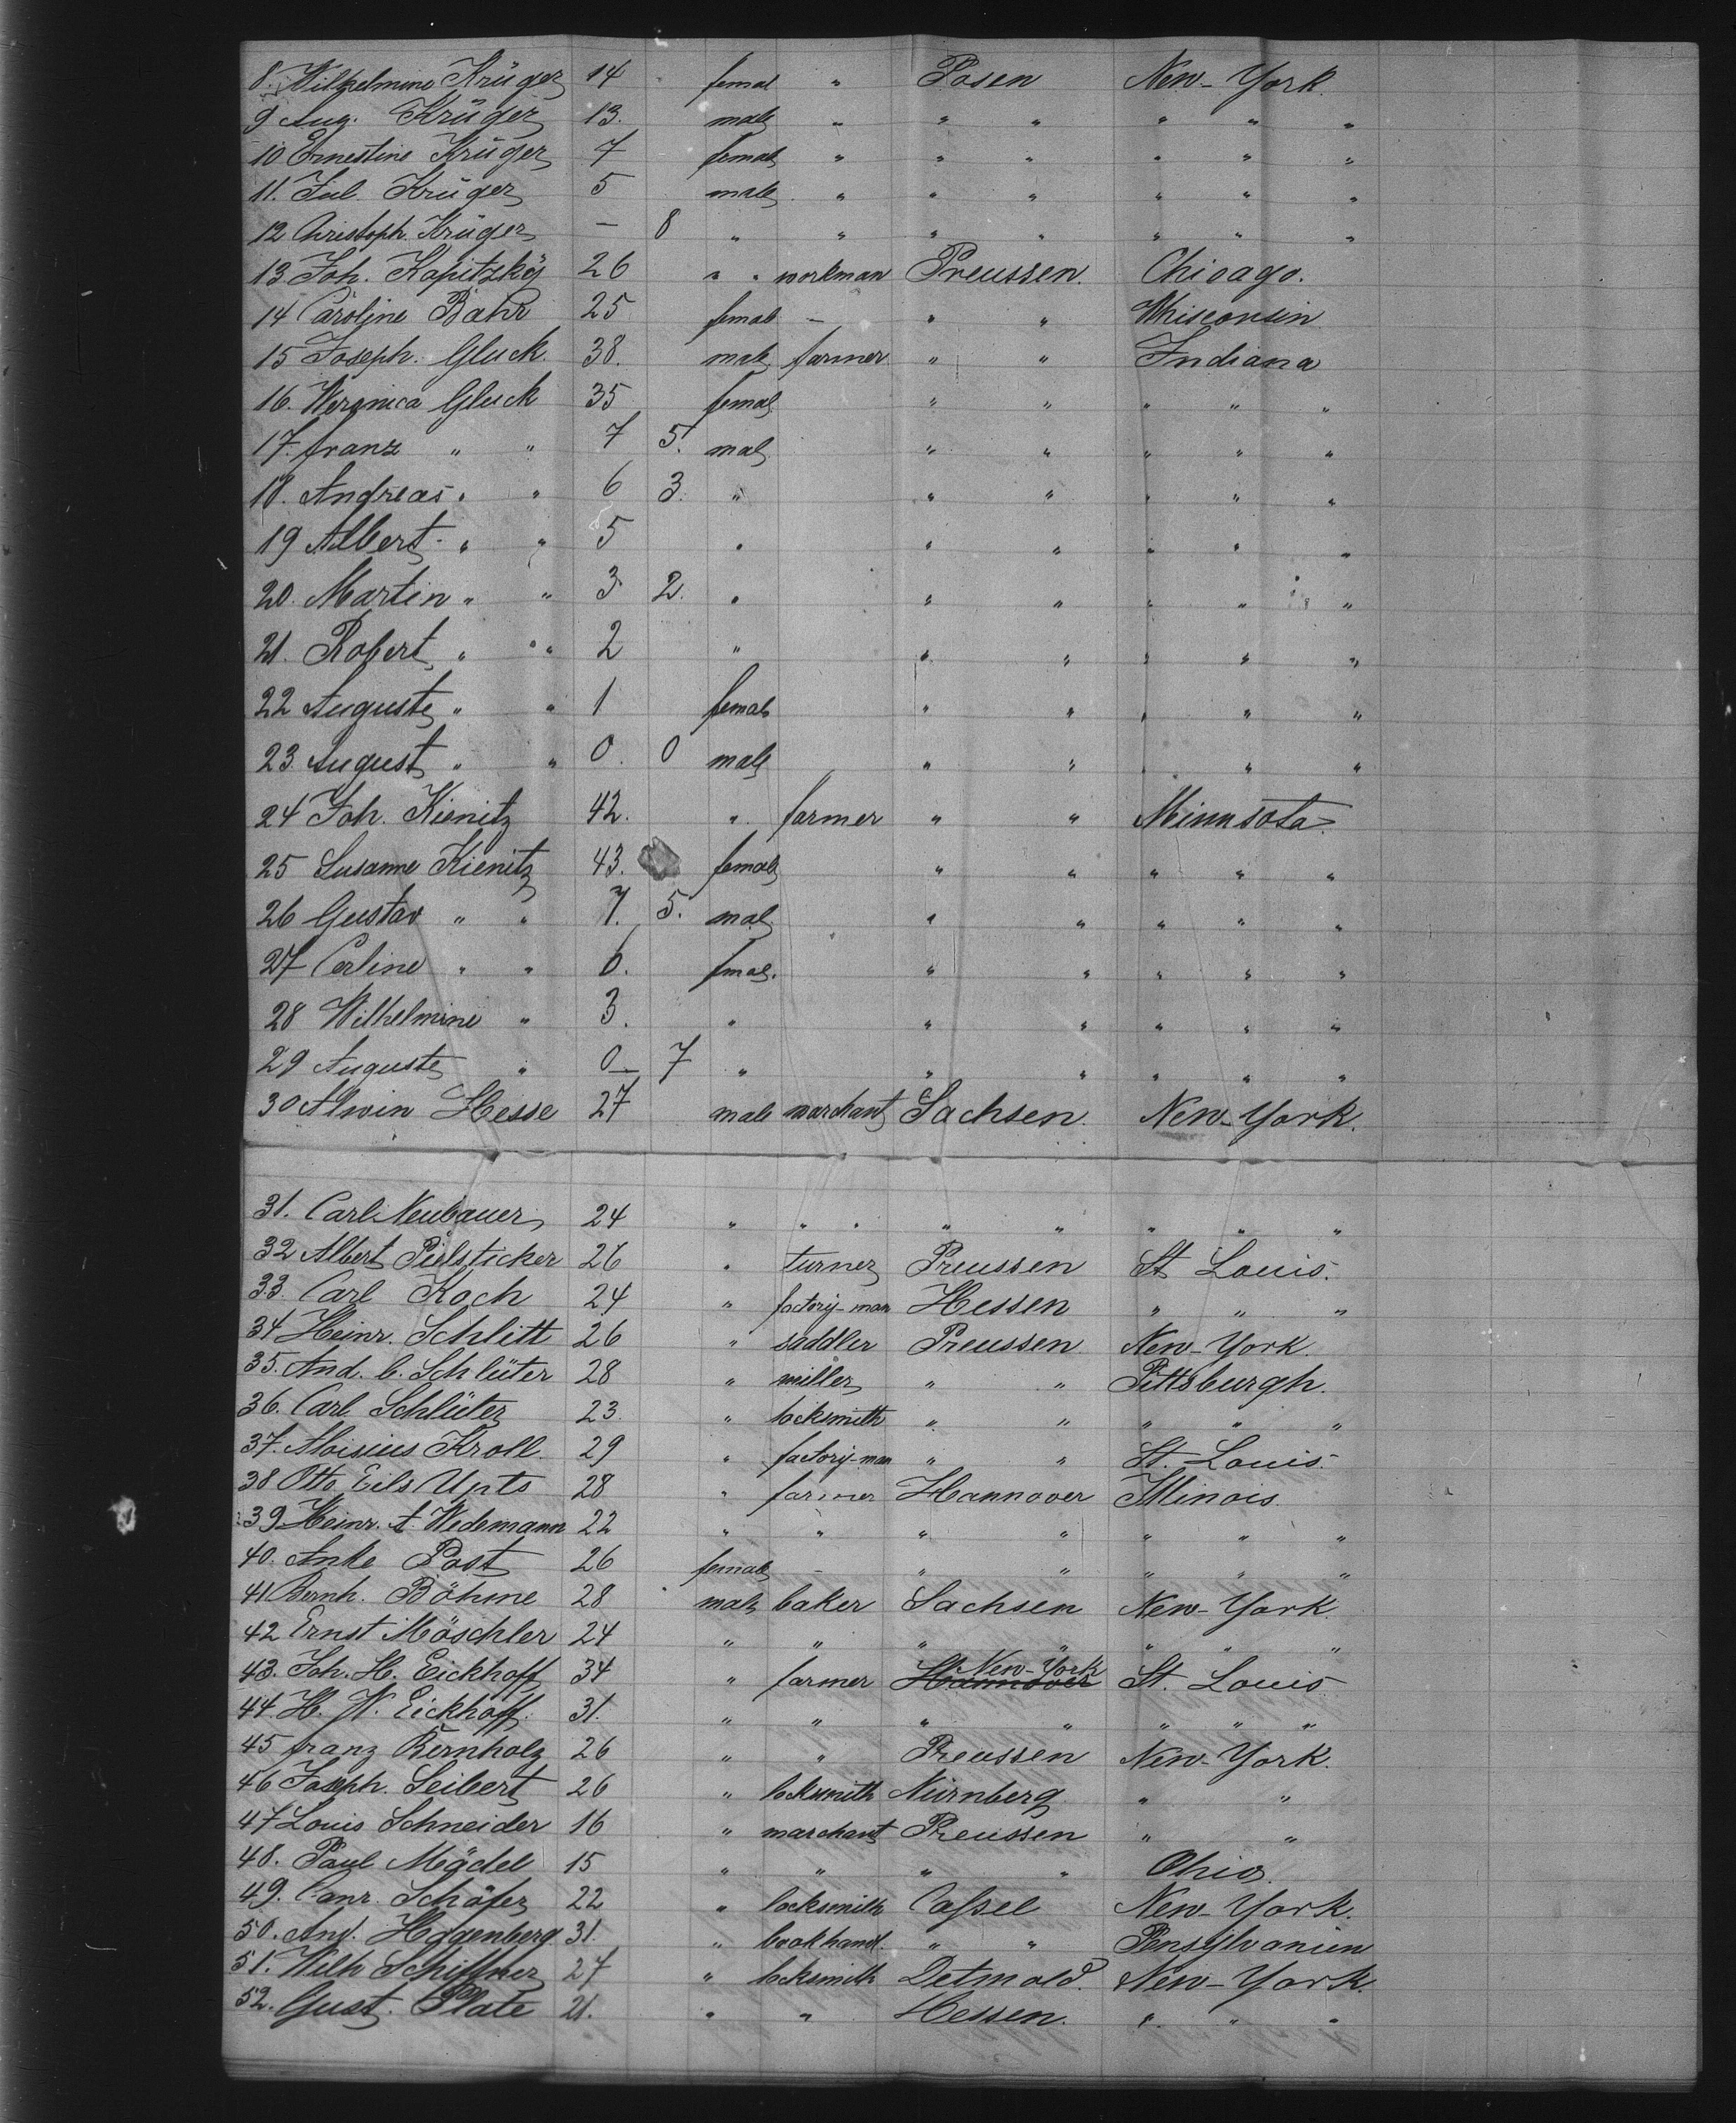 8. Wilhelmine Krüger 14 femal " Posen New-York.
9 Aug. Krüger 13. male " " " " " "
10 Ernestine Krüger 7 female " " " " " "
11. Jul. Krüger 5 male " " " " " "
12 Christoph. Krüger — 8 " " " " " " "
13 Joh. Kapitzky 26 " " workman Preussen. Chicago.
14 Caroline Bahr 25 female — " " Whisconsin
15 Joseph. Gluck. 38. male farmer " " Indiana
16. Weronica Gluck 35 female " " " " "
17. franz " " 7 5. male " " " " "
18. Andreas " " 6 3. " " " " " "
19 Albert " " 5 " " " " " "
20. Martin " " 3 2. " " " " " "
21. Robert " " 2 " " " " " "
22 Auguste " " 1 female " " " " "
23. August " " 0. 0 male " " " " "
24 Joh. Kienitz 42. " farmer " " Minnsota.
25 Susanne Kienitz 43. female " " " " "
26 Gustav " " 7. 5. male " " " " "
27 Carline " " 6. fmale. " " " " "
28 Wilhelmine " 3. " " " " " "
29 Auguste " 0— 7 " " " " " "
30 Alwin Hesse 27 male marchant Sachsen. New-York.
31. Carl Neubauer 24 " " " " " " " "
32 Albert Pielsticker 26 " turner Preussen St Louis.
33. Carl Koch 24 " factory-man Hessen " " "
34 Heinr. Schlitt 26 " saddler Preussen New-York.
35. And. C. Schlüter 28 " miller " " Pittsburgh.
36. Carl Schlüter 23. " locksmith " " " " "
37. Aloisius Kroll. 29 " factory-man " " St. Louis.
38 Otto Eils Upts 28 " farmer Hannover Illinois.
39 Heinr. A. Wedemann 22 " " " " " " "
40. Anke Post 26 female — " " " " "
41 Bernh. Böhme 28 male baker Sachsen New-York
42 Ernst Möschler 24 " " " " " " "
43. Joh. H. Eickhoff 34 " farmer Hannover New-York St. Louis
44. H. W. Eickhoff. 31. " " " " " " "
45 franz Bernholz 26 " " Preussen New-York.
46 Joseph. Seibert 26 " locksmith Nürnberg " "
47 Louis Schneider 16 " marchant Preussen " "
48. Paul Mädel 15 " " " " Ohio.
49. Conr. Schäfer 22 " locksmith Cassel New-York.
50. And. Haggenberg. 31. " bookhand. " " Pensylvanien
51. Wilh Schiffner 27 " locksmith Detmold. New-York.
52. Gust. Plate 21. " " Hessen. " " "